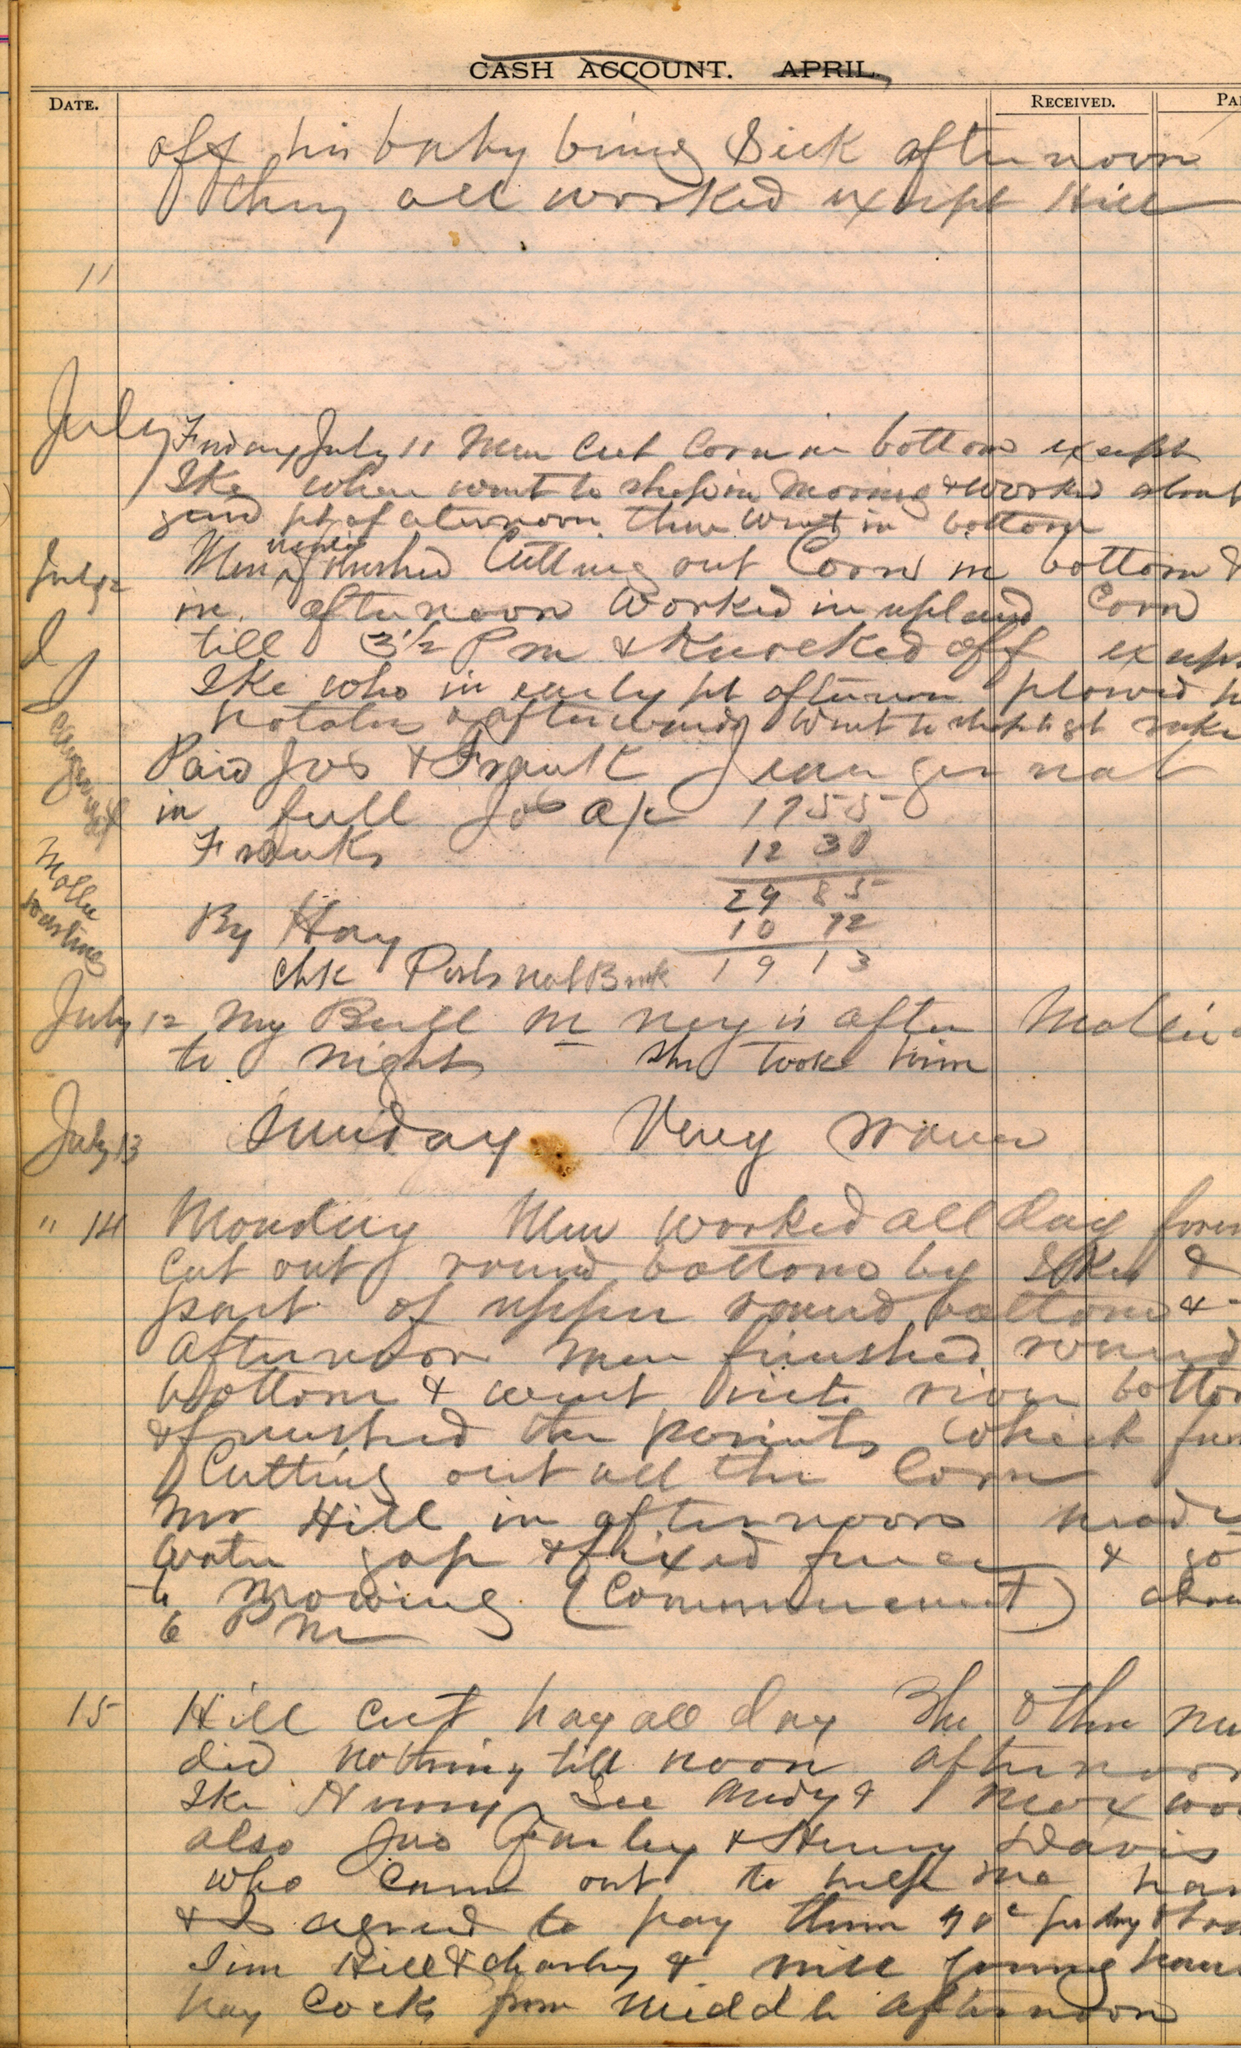 CASH ACCOUNT. APRIL.
DATE. RECEIVED. PAI
off his baby being Sick afternoon
they all worked except Hill
11
July Friday July 11 Men Cut Corn in bottom except
Ike when went to shop in morning & worked about
pt of afternoon then went in bottom
July 12 Men nearly finished Cutting out Corn in bottom &
in afternoon worked in upland Corn
till 3 1/2 Pm & Knocked off except
Ike who in early pt afternoon plowed
potatoes & afterwards went to shop to get rake
Paid Jos & Frank
in full Jos a/c 17 55
Franks 12 30
29 85
By Hay 10 72
Chk Nat Bank 19 13
Mollie
July 12 My Bull is after Mollie
to night she took him
July 13 Sunday Very warm
" 14 Monday Men worked all day
Cut out round bottom by Ike &
part of upper round bottom &
afternoon men finished round
bottom & went into river bottom
& finished the points which
Cutting out all the Corn
Mr Hill in afternoon made
water gap & fixed fence & go
to Mowing (Commencement)
6 PM
15 Hill cut hay all day The other
did nothing till noon afternoon
Ike Henry Lee Andy &
also Jno Farley & Henry Davis
who came out to help me
& I agreed to pay them per day
Jim Hill & Charley &
hay Cocks from middle afternoon